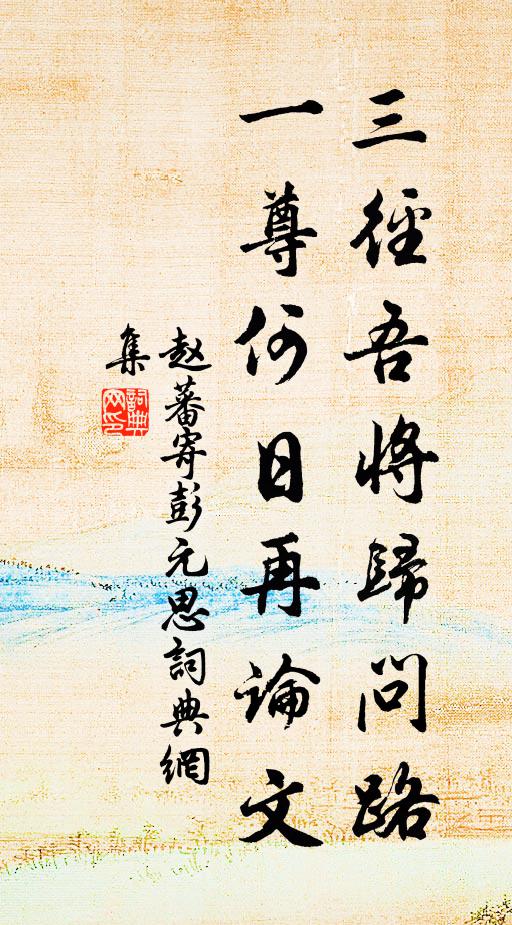 三徑吾將歸問路
一尊何日再論文
赵蕃寄彭元思詞典網
集
詞典
网印